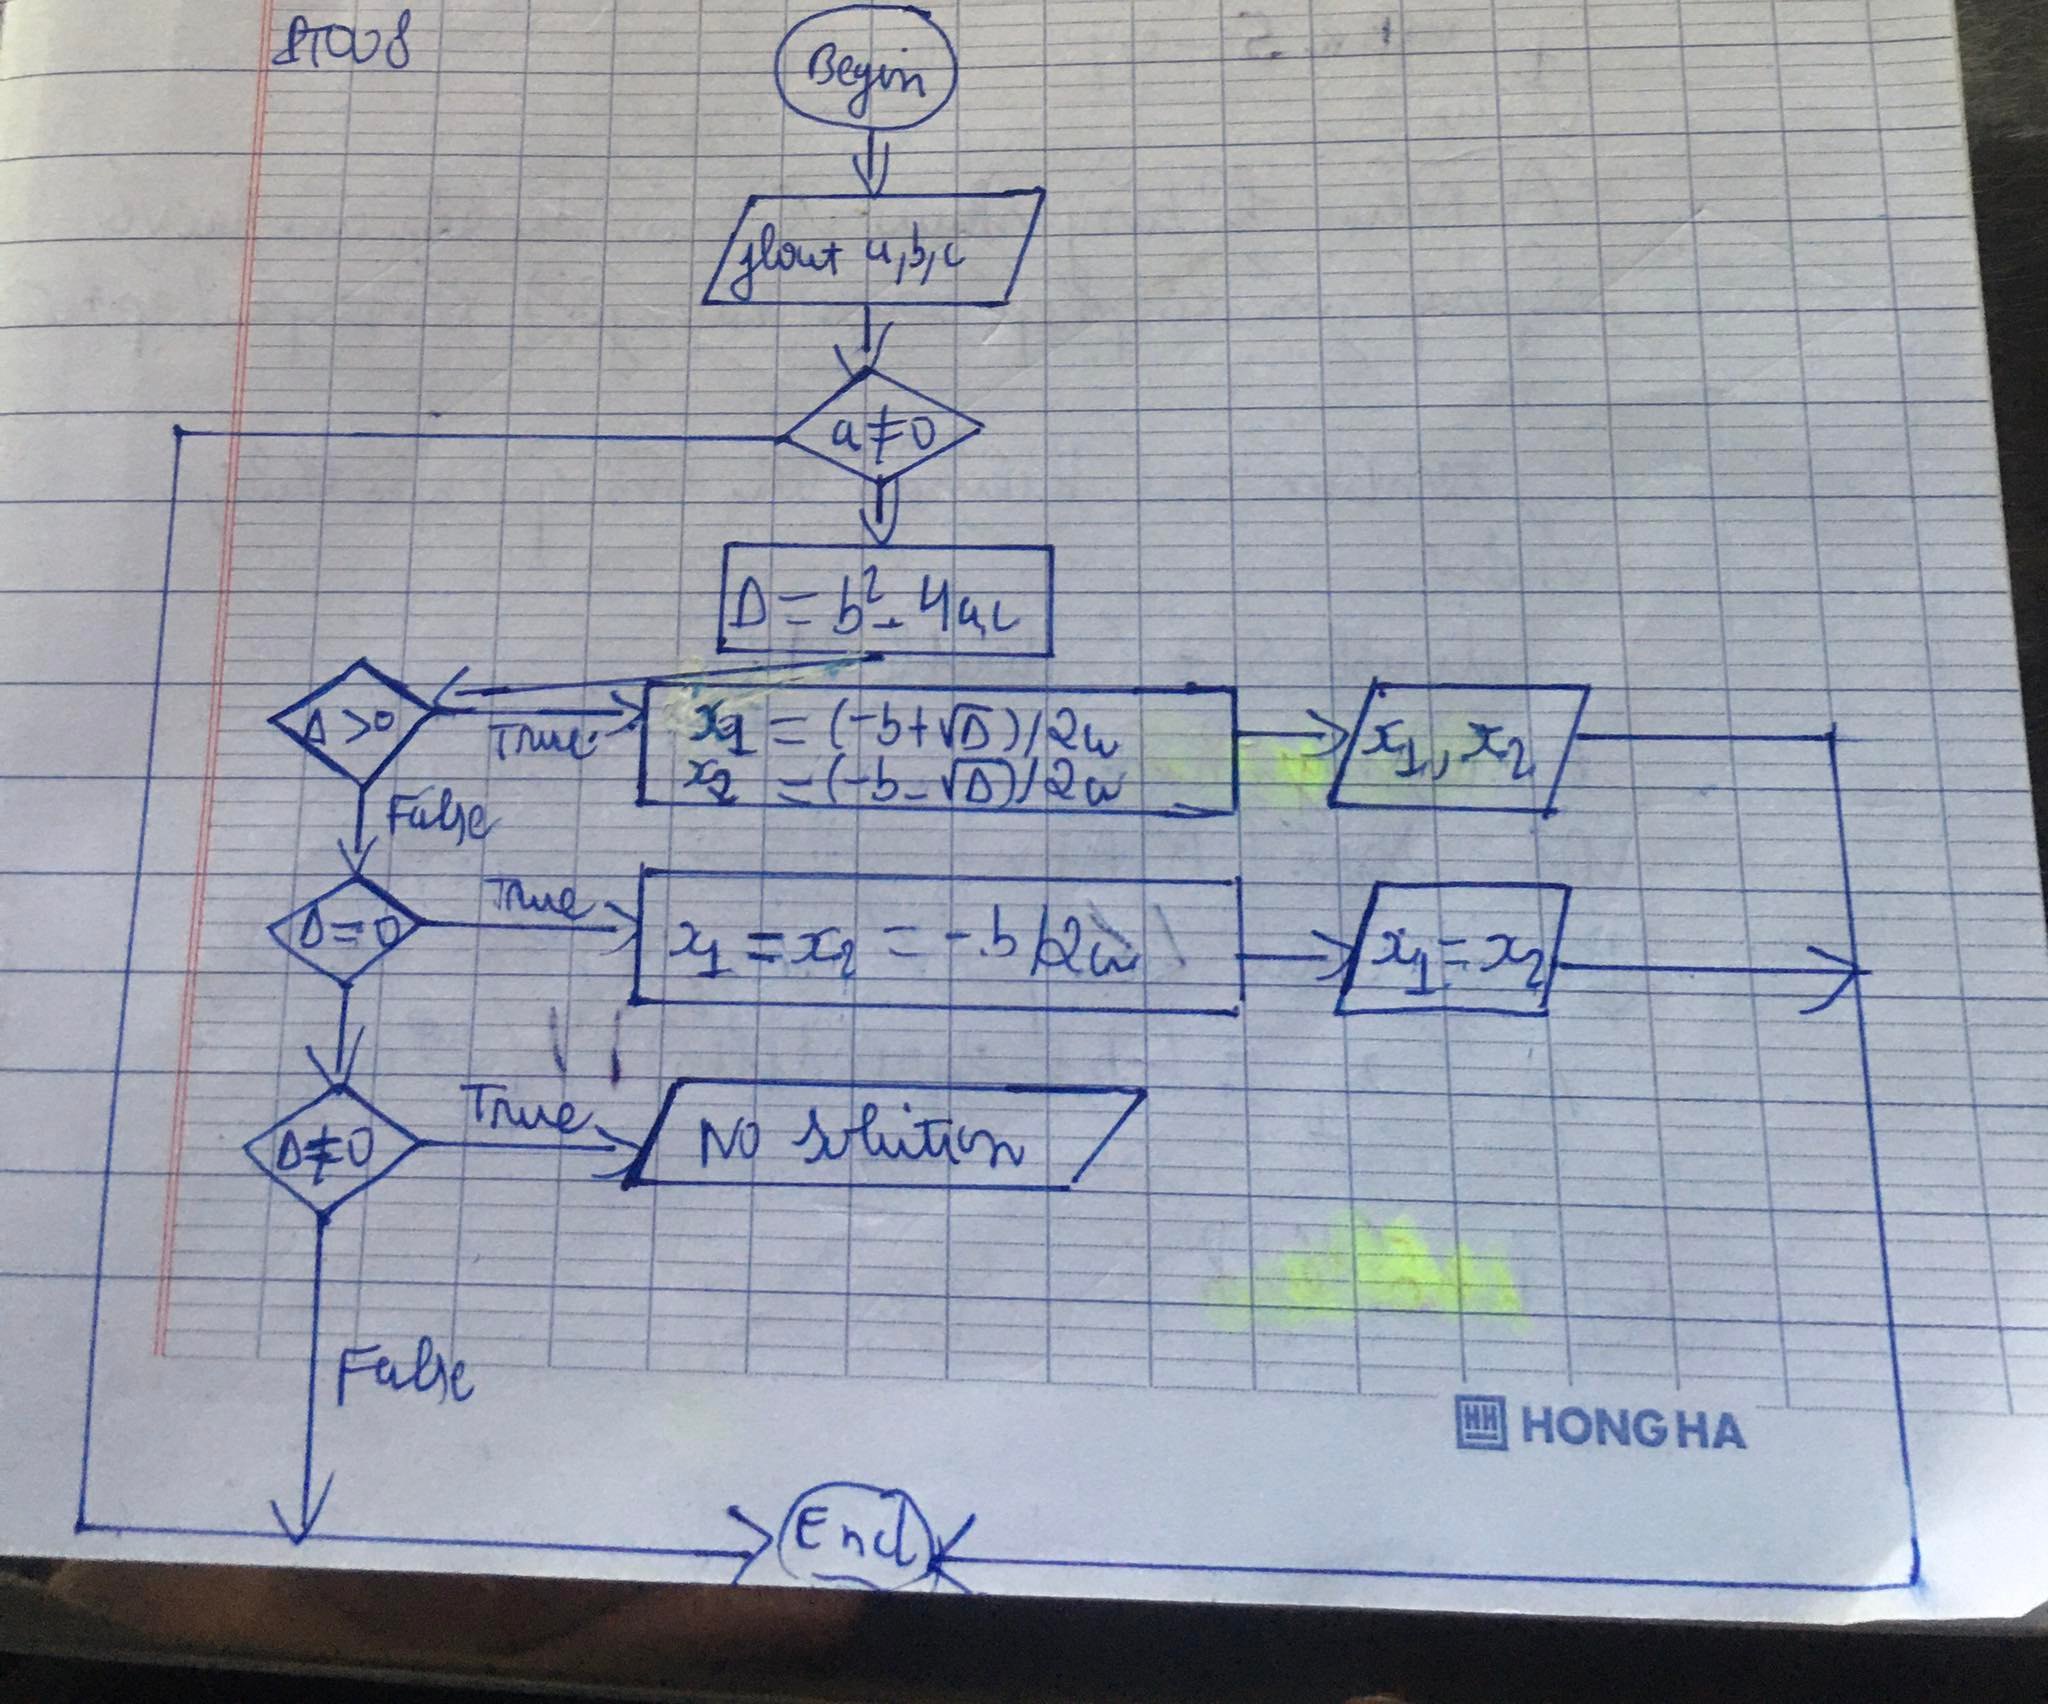 BT008
Begin
float a,b,c
a≠0
Δ = b² - 4ac
Δ >0
True
x1 = (-b+√Δ)/2a
x2 = (-b-√Δ)/2a
x1, x2
False
Δ=0
True
x1 = x2 = -b/2a
x1 = x2
Δ≠0
True
No solution
False
HH HONG HA
End